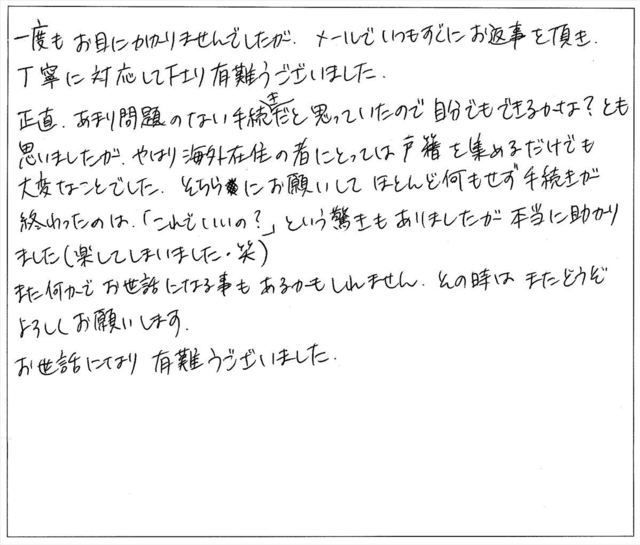 一度もお目にかかりませんでしたが、メールでいつもすぐにお返事を頂き、
丁寧に対応して下さり有難うございました。
正直、あまり問題のない手続きだと思っていたので自分でもできるかな？とも
思いましたが、やはり海外在住の者にとっては戸籍を集めるだけでも
大変なことでした。そちらにお願いしてほとんど何もせず手続きが
終わったのは、「これでいいの？」という驚きもありましたが本当に助かり
ました（楽してしまいました・笑）
また何かでお世話になる事もあるかもしれません。その時はまたどうぞ
よろしくお願いします。
お世話になり有難うございました。